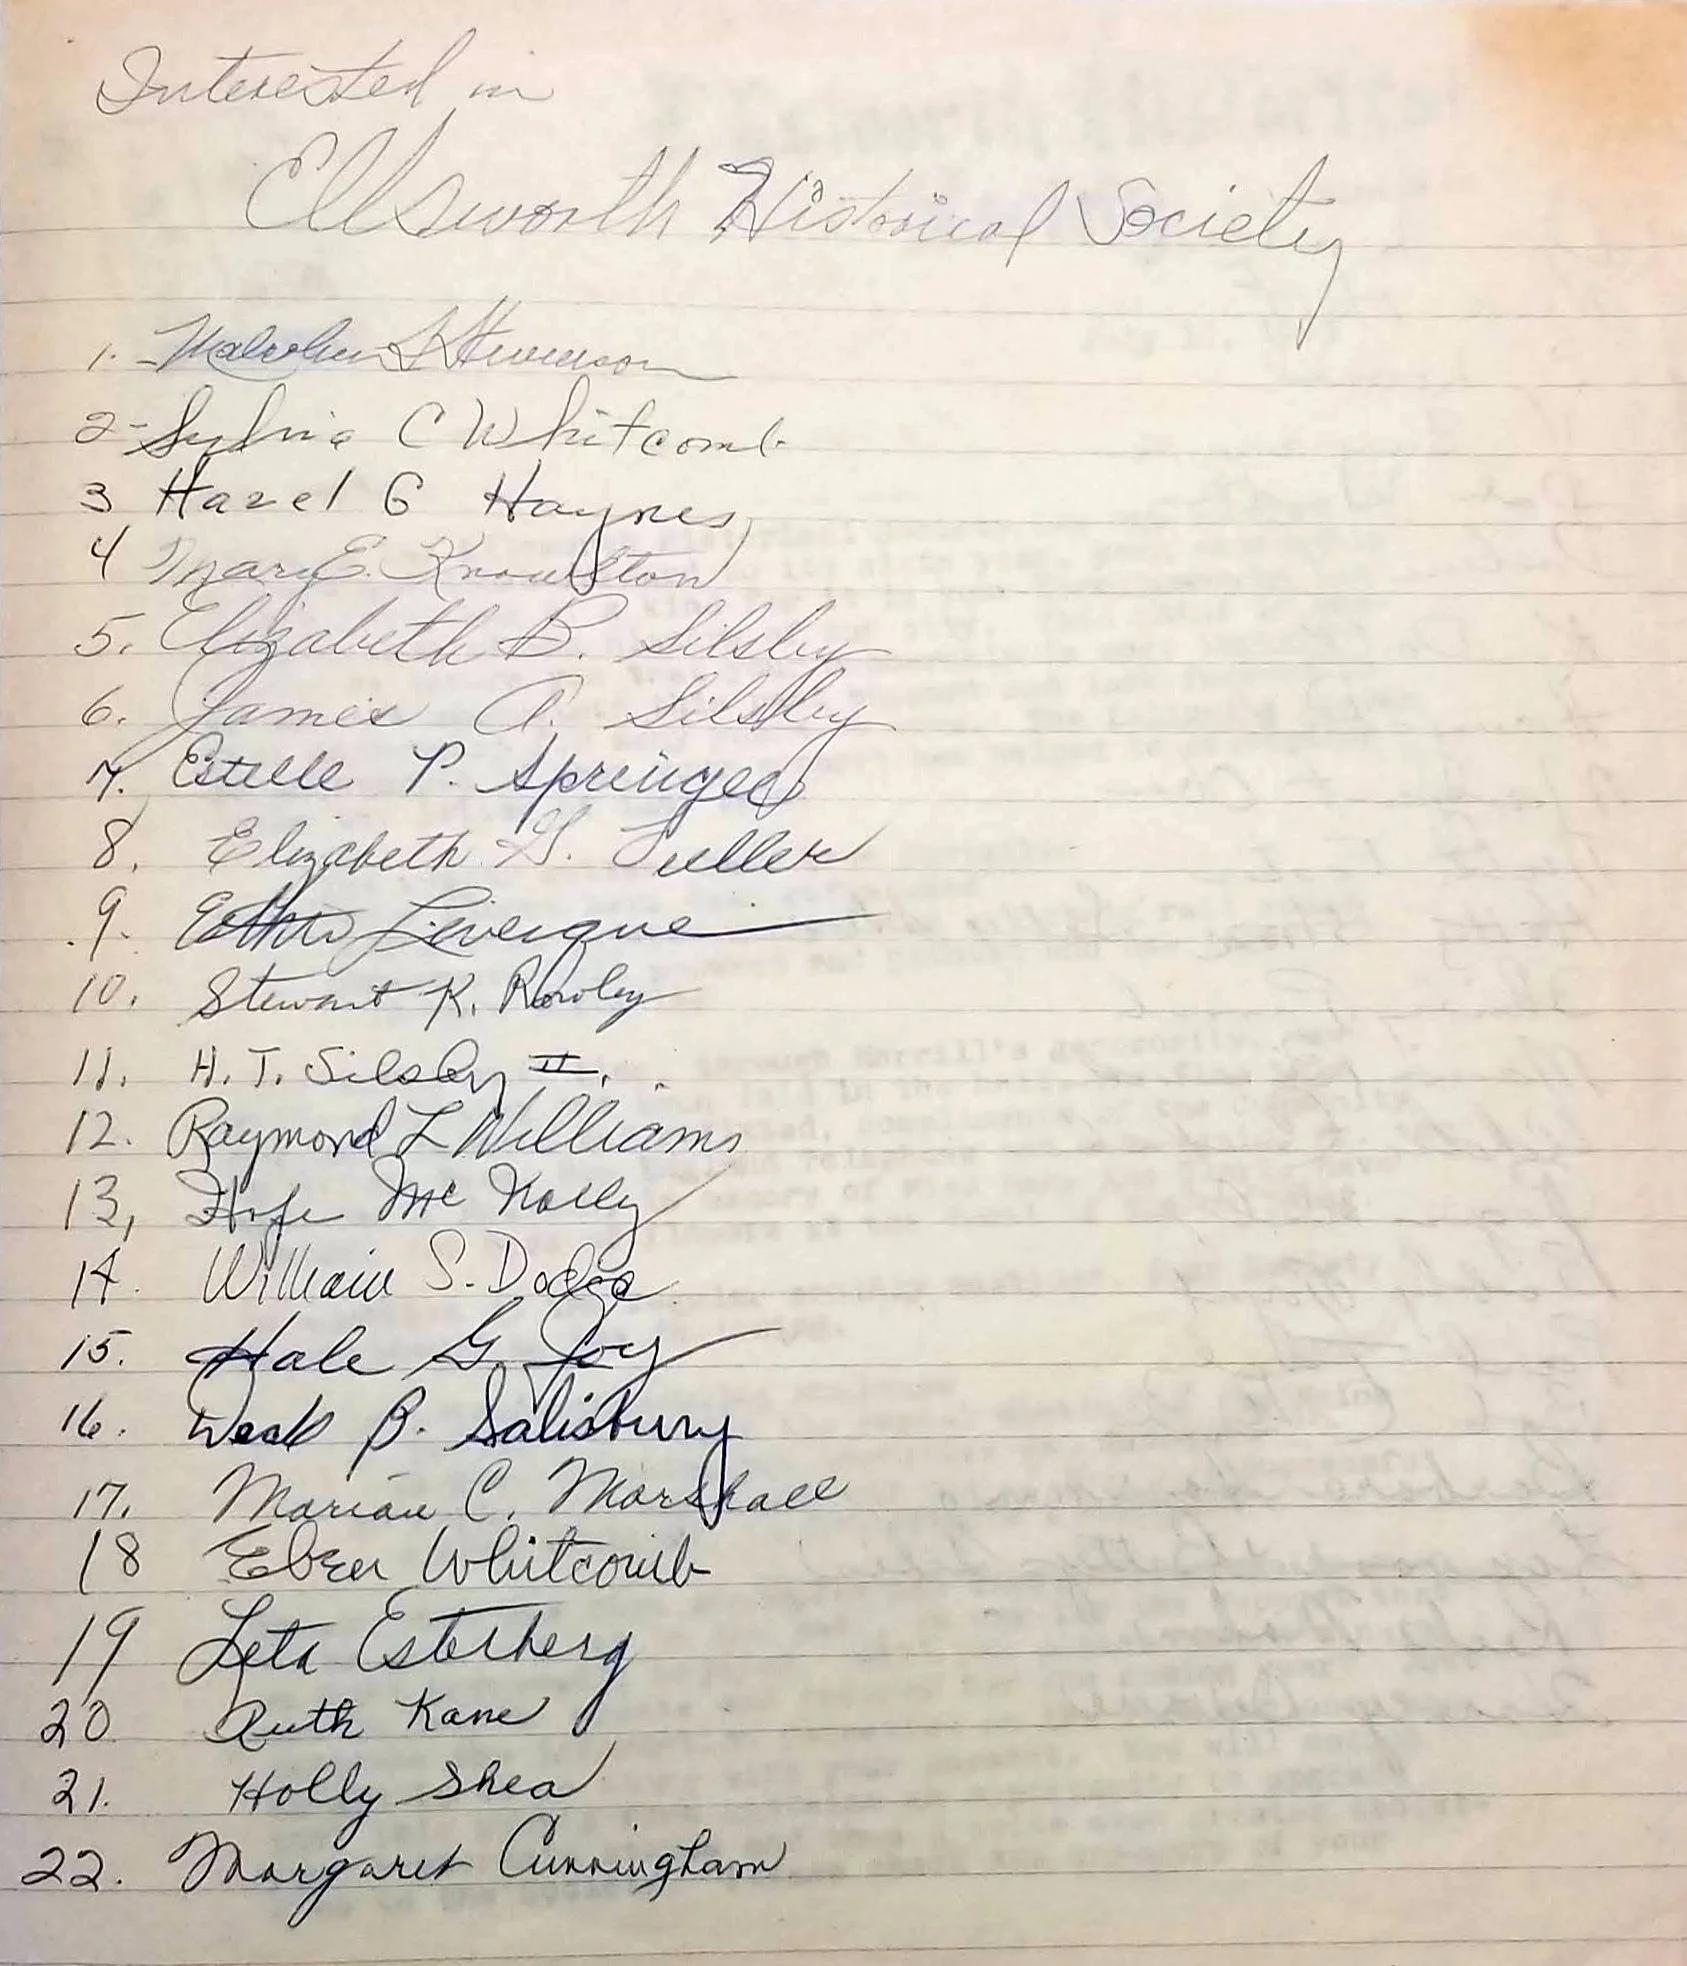 Interested in
Ellsworth Historical Society
1. Malcolm
2- Sylvia C Whitcomb
3 Hazel G Haynes
4 Mary E. Knowlton
5. Elizabeth B. Silsby
6. James A. Silsby
7. Estelle P. Springer
8. Elizabeth G. Fuller
9. Levesque
10. Stewart K. Rowley
11. H. T. Silsby II.
12. Raymond L Williams
13, Hope Mc Nally
14. William S. Dodge
15. Hale G. Joy
16. B. Salisbury
17. Marian C. Marshall
18 Eben Whitcomb
19 Leta Esterberg
20 Ruth Kane
21. Holly Shea
22. Margaret Cunningham